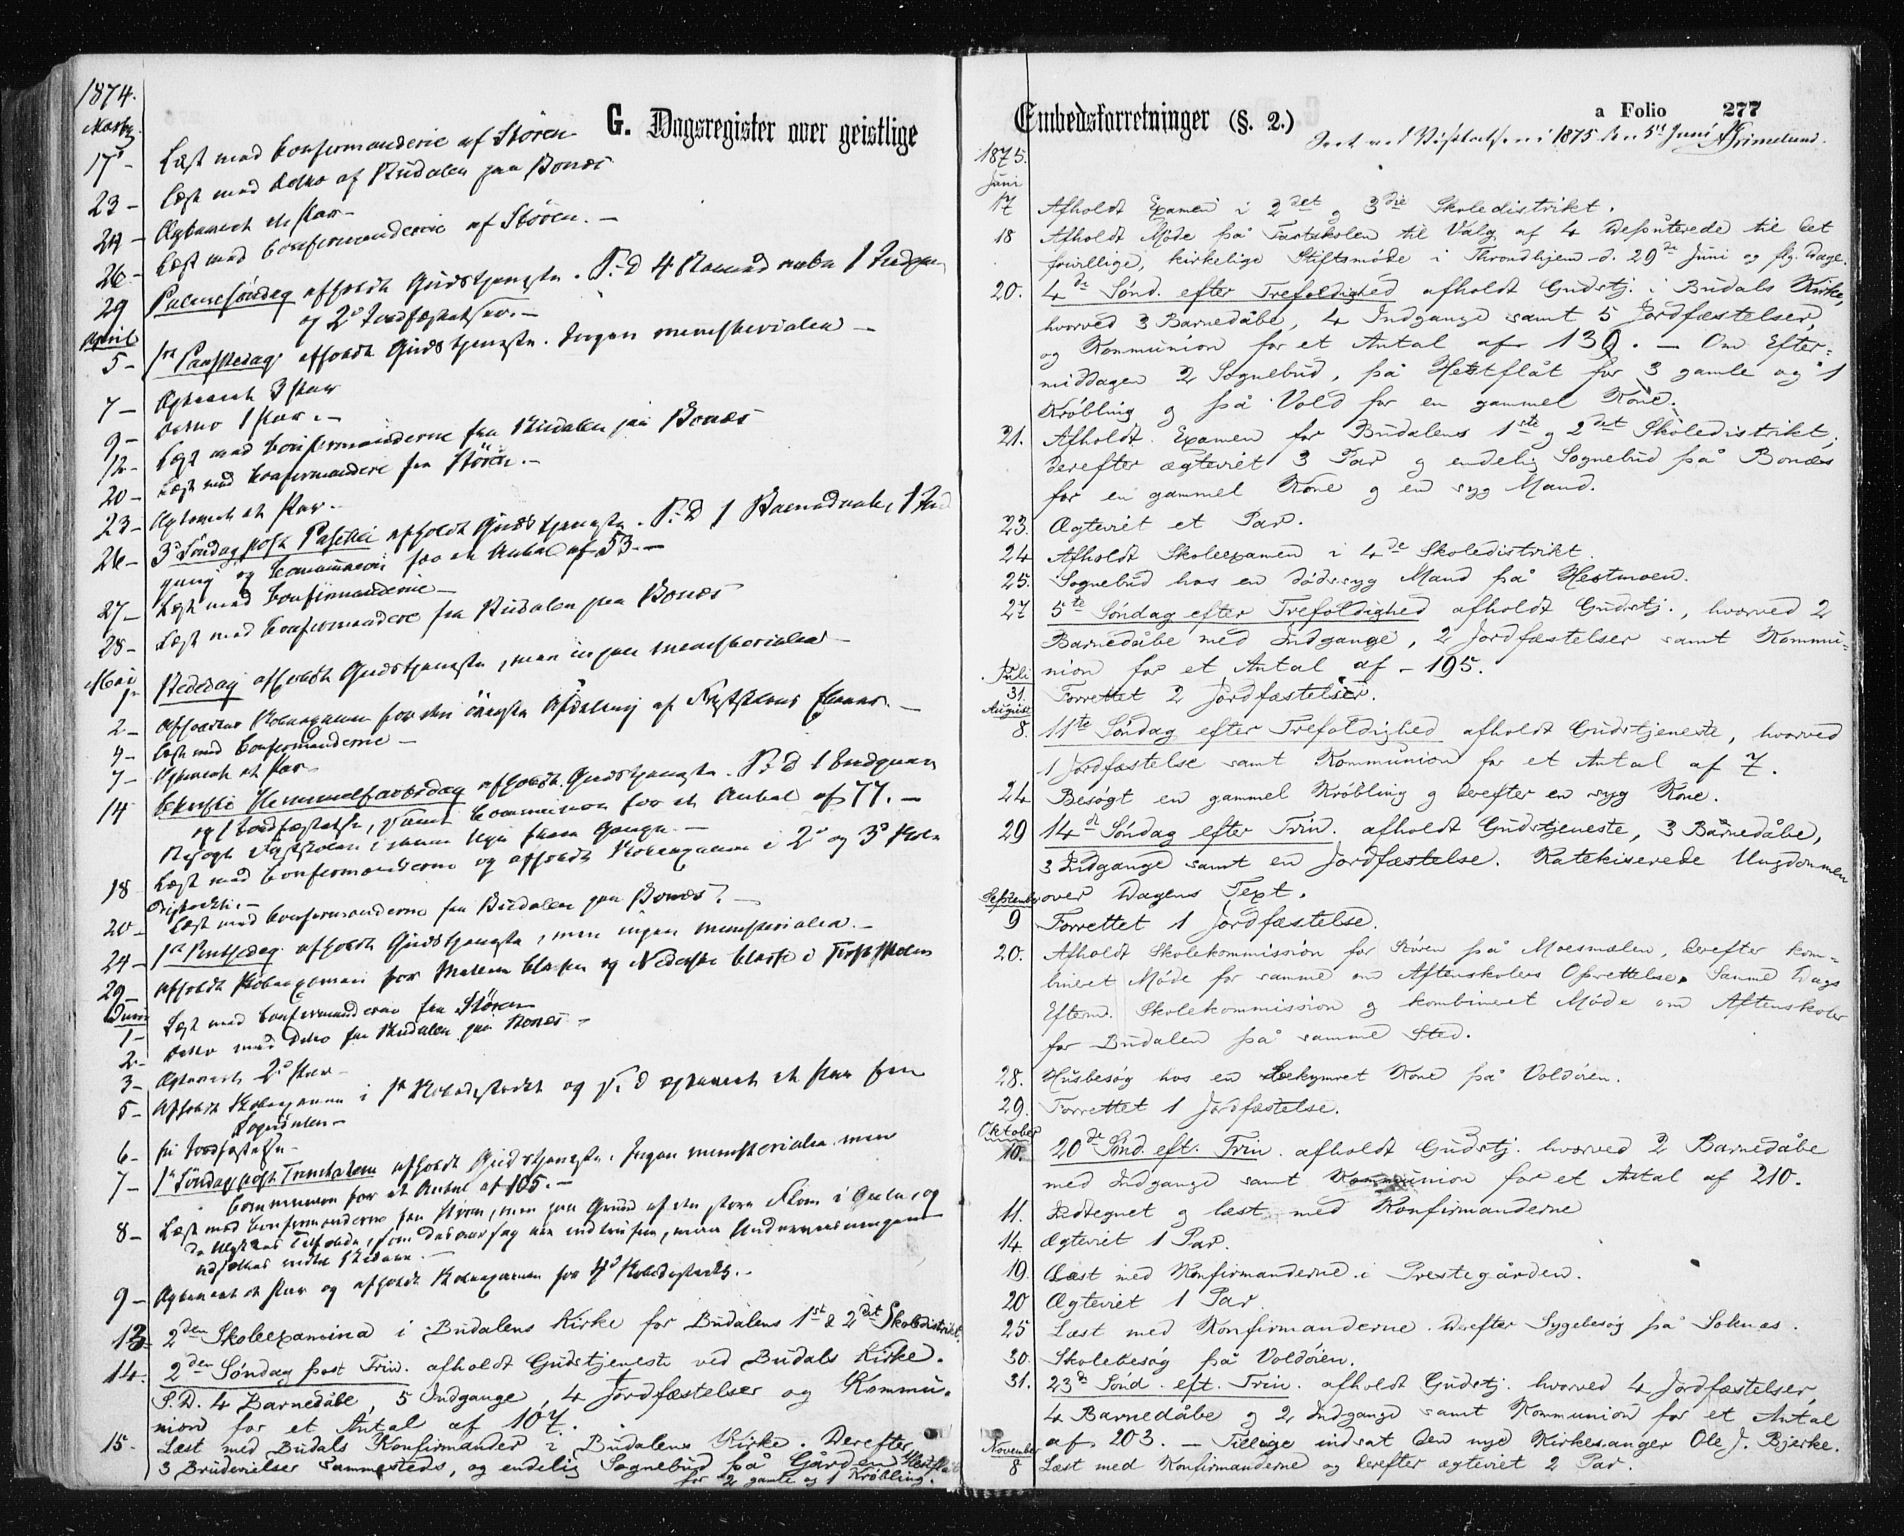 1874.
G. Dagsregister over geistlige
Marts
17 - Læst med Confirmanderne af Støren
23 - Læst med ditto af Budalen paa Bonæs
24 - Ægteviet et Par -
26 - Læst med Confirmanderne af Støren. -
29 Palmesøndag afholdt Gudstjeneste. S. D. 4 Barnedaabe 1 Indgang
og 2 Jordfæstelser. -
April
5 - 1ste Paaskedag afholdt Gudstjeneste. Ingen ministerialia -
7 - Ægteviet 3 Par
9 - ditto 1 Par. -
12 - Læst med Confirmanderne fra Budalen paa Bonæs
20 - Læst med Confirmanderne fra Støren. -
23 - Ægteviet et Par. -
26 - 3die Søndag post Paschæ afholdt Gudstjeneste. S. D. 1 Barnedaab, 1 Ind
gang og Communion for et Antal af 53. -
27 - Læst med Confirmanderne -
28 - Læst med Confirmanderne fra Budalen paa Bonæs
Mai
1 - Bededag afholdt Gudstjeneste, men ingen ministerialia -
2 - Afholdt Skoleexamen for den Afdeling af
4 - Læst med Confirmanderne -
7 - Ægteviet et Par
14 Christi Himmelfartsdag afholdt Gudstjeneste. S. D. 1 Indgang
og 1 Jordfæstelse, samt Communion for et Antal af 77. -
Besøgt
18 Læst med Confirmanderne og afholdt Skoleexamen i 2 og 3 Skole
distrikt. -
20 - Læst med Confirmanderne fra Budalen paa Bonæs. -
24 - 1ste Pintsedag afholdt Gudstjeneste, men ingen ministerialia. -
29 - Afholdt Skoleexamen for Mellem Classen og Nederste Classe i Fastskolen
Juni
1 - Læst med Confirmanderne fra Støren
2 - ditto med ditto fra Budalen paa Bonæs -
3 - Ægteviet 2 Par -
5 - Afholdt Skoleexamen i 1ste Skoledistrikt og S. D. ægteviet et Par fra
6 - En Jordfæstelse -
7 - 1ste Søndag post Trinitatem afholdt Gudstjeneste. Ingen ministerialia men
Communion for et Antal af 105. -
8 - Læst med Confirmanderne fra Støren, men paa Grund af den store Flom i Gula, og
9 - Ægteviet et Par og afholdt Skoleexamen for 4de Skoledistrikt. -
13 - 2den Skoleexamina i Budalens Kirke for Budalens 1st & 2det Skoledistrikt.
14. 2den Søndag post Trin. afholdt Gudstjeneste ved Budals Kirke.
S.D. 4 Barnedåbe, 5 Indgange, 4 Jordfæstelser og Kommu-
nion for et Antal af 107.
15. Læst med Budals Konfirmander i Budalens Kirke. Derefter
3 Brudevielser sammesteds, og endelig Sognebud på Gården Hestflåt
for 2 gamle og 1 Krøbling.
Embedsforretninger (§. 2.)
a Folio 277
Seet ved Visitatsen i 1875 den 5te Juni Grimelund.
1875.
Juni
17 Afholdt Examen i 2det og 3die Skoledistrikt.
18 Afholdt Møde på Fastskolen til Valg af 4 Deputerede til det
frivillige, kirkelige Stiftsmøde i Throndhjem d. 29de Juni og flg. Dage.
20. 4de Sønd. efter Trefoldighed afholdt Gudstj. i Budals Kirke,
hvorved 3 Barnedåbe, 4 Indgange samt 5 Jordfæstelser,
og Kommunion for et Antal af 130. - Om Efter-
middagen 2 Sognebud, på Hestflåt for 3 gamle og 1
Krøbling og på Vold for en gammel Kone.
21. Afholdt Examen for Budalens 1ste og 2det Skoledistrikt,
derefter ægteviet 3 Par og endelig Sognebud på Bonæs
for en gammel Kone og en syg Mand.
23. Ægteviet et Par.
24 Afholdt Skoleexamen i 4de Skoledistrikt.
25. Sognebud hos en dødssyg Mand på Hestmoen.
27 5te Søndag efter Trefoldighed afholdt Gudstj., hvorved 2
Barnedåbe med Indgange, 2 Jordfæstelser samt Kommu-
nion for et Antal af - 195.
Juli
31. Forrettet 2 Jordfæstelser.
August
8. 11te Søndag efter Trefoldighed afholdt Gudstjeneste, hvorved
1 Jordfæstelse samt Kommunion for et Antal af 7.
24 Besøgt en gammel Krøbling og derefter en syg Kone.
29 14de Søndag efter Trin. afholdt Gudstjeneste, 3 Barnedåbe,
3 Indgange samt en Jordfæstelse. Katekiserede Ungdommen
over Dagens Text.
September
9 Forrettet 1 Jordfæstelse.
20. Afholdt Skolekommission for Støren på Moesmælen, derefter kom-
bineret Møde for samme om Aftenskolers Oprettelse. Samme Dags
Efterm. Skolekommission og kombineret Møde om Aftenskoler
for Budalen på samme Sted.
28. Husbesøg hos en bekymret Kone på Voldøien.
29. Forrettet 1 Jordfæstelse.
Oktober
10. 20de Sønd. eft. Trin. afholdt Gudstj. hvorved 2 Barnedåbe
med Indgange samt Kommunion for et Antal af 210.
11. Indtegnet og læst med Konfirmanderne
14 Ægteviet 1 Par.
19. Læst med Konfirmanderne i Prestegården.
20 Ægteviet 1 Par
25 Læst med Konfirmanderne. Derefter Sygebesøg på Soknæs.
30. Skolebesøg på Voldøien.
31. 23de Sønd. eft. Trin. afholdt Gudstj. hvorved 4 Jordfæstelser,
4 Barnedåbe og 2 Indgange samt Kommunion for et Antal
af 203. - Tillige indsat den nye Kirkesanger Ole J. Bjerke.
November
8 Læst med Konfirmanderne og derefter ægteviet 2 Par.